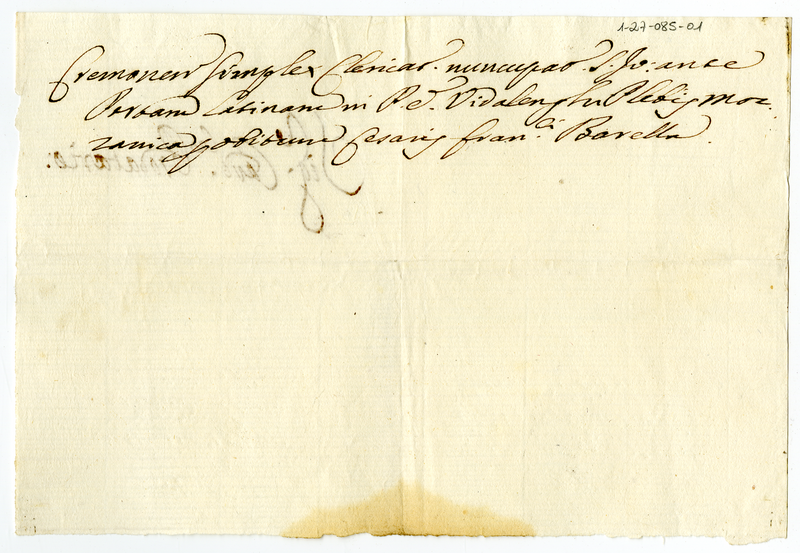 1-27-085-01
Cremonen simplex Clericat. nuncupat. S. Jo: ante
Portam Latinam in P. e. Vidalenghi Plebis Moz:
zanica p obitum Cesaris Fran.ci Barella.
Sig.